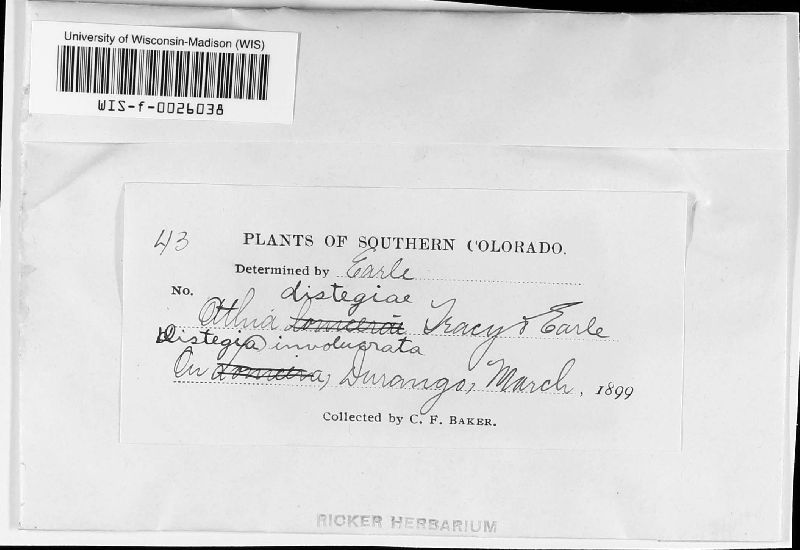 University of Wisconsin-Madison (WIS)
WIS-f-0026038
43 PLANTS OF SOUTHERN COLORADO.
Determined by Earle
No. distegiae
Otthia Lonicerae Tracy & Earle
Distegia involucrata
On Lonicera, Durango, March, 1899
Collected by C. F. BAKER.
RICKER HERBARIUM